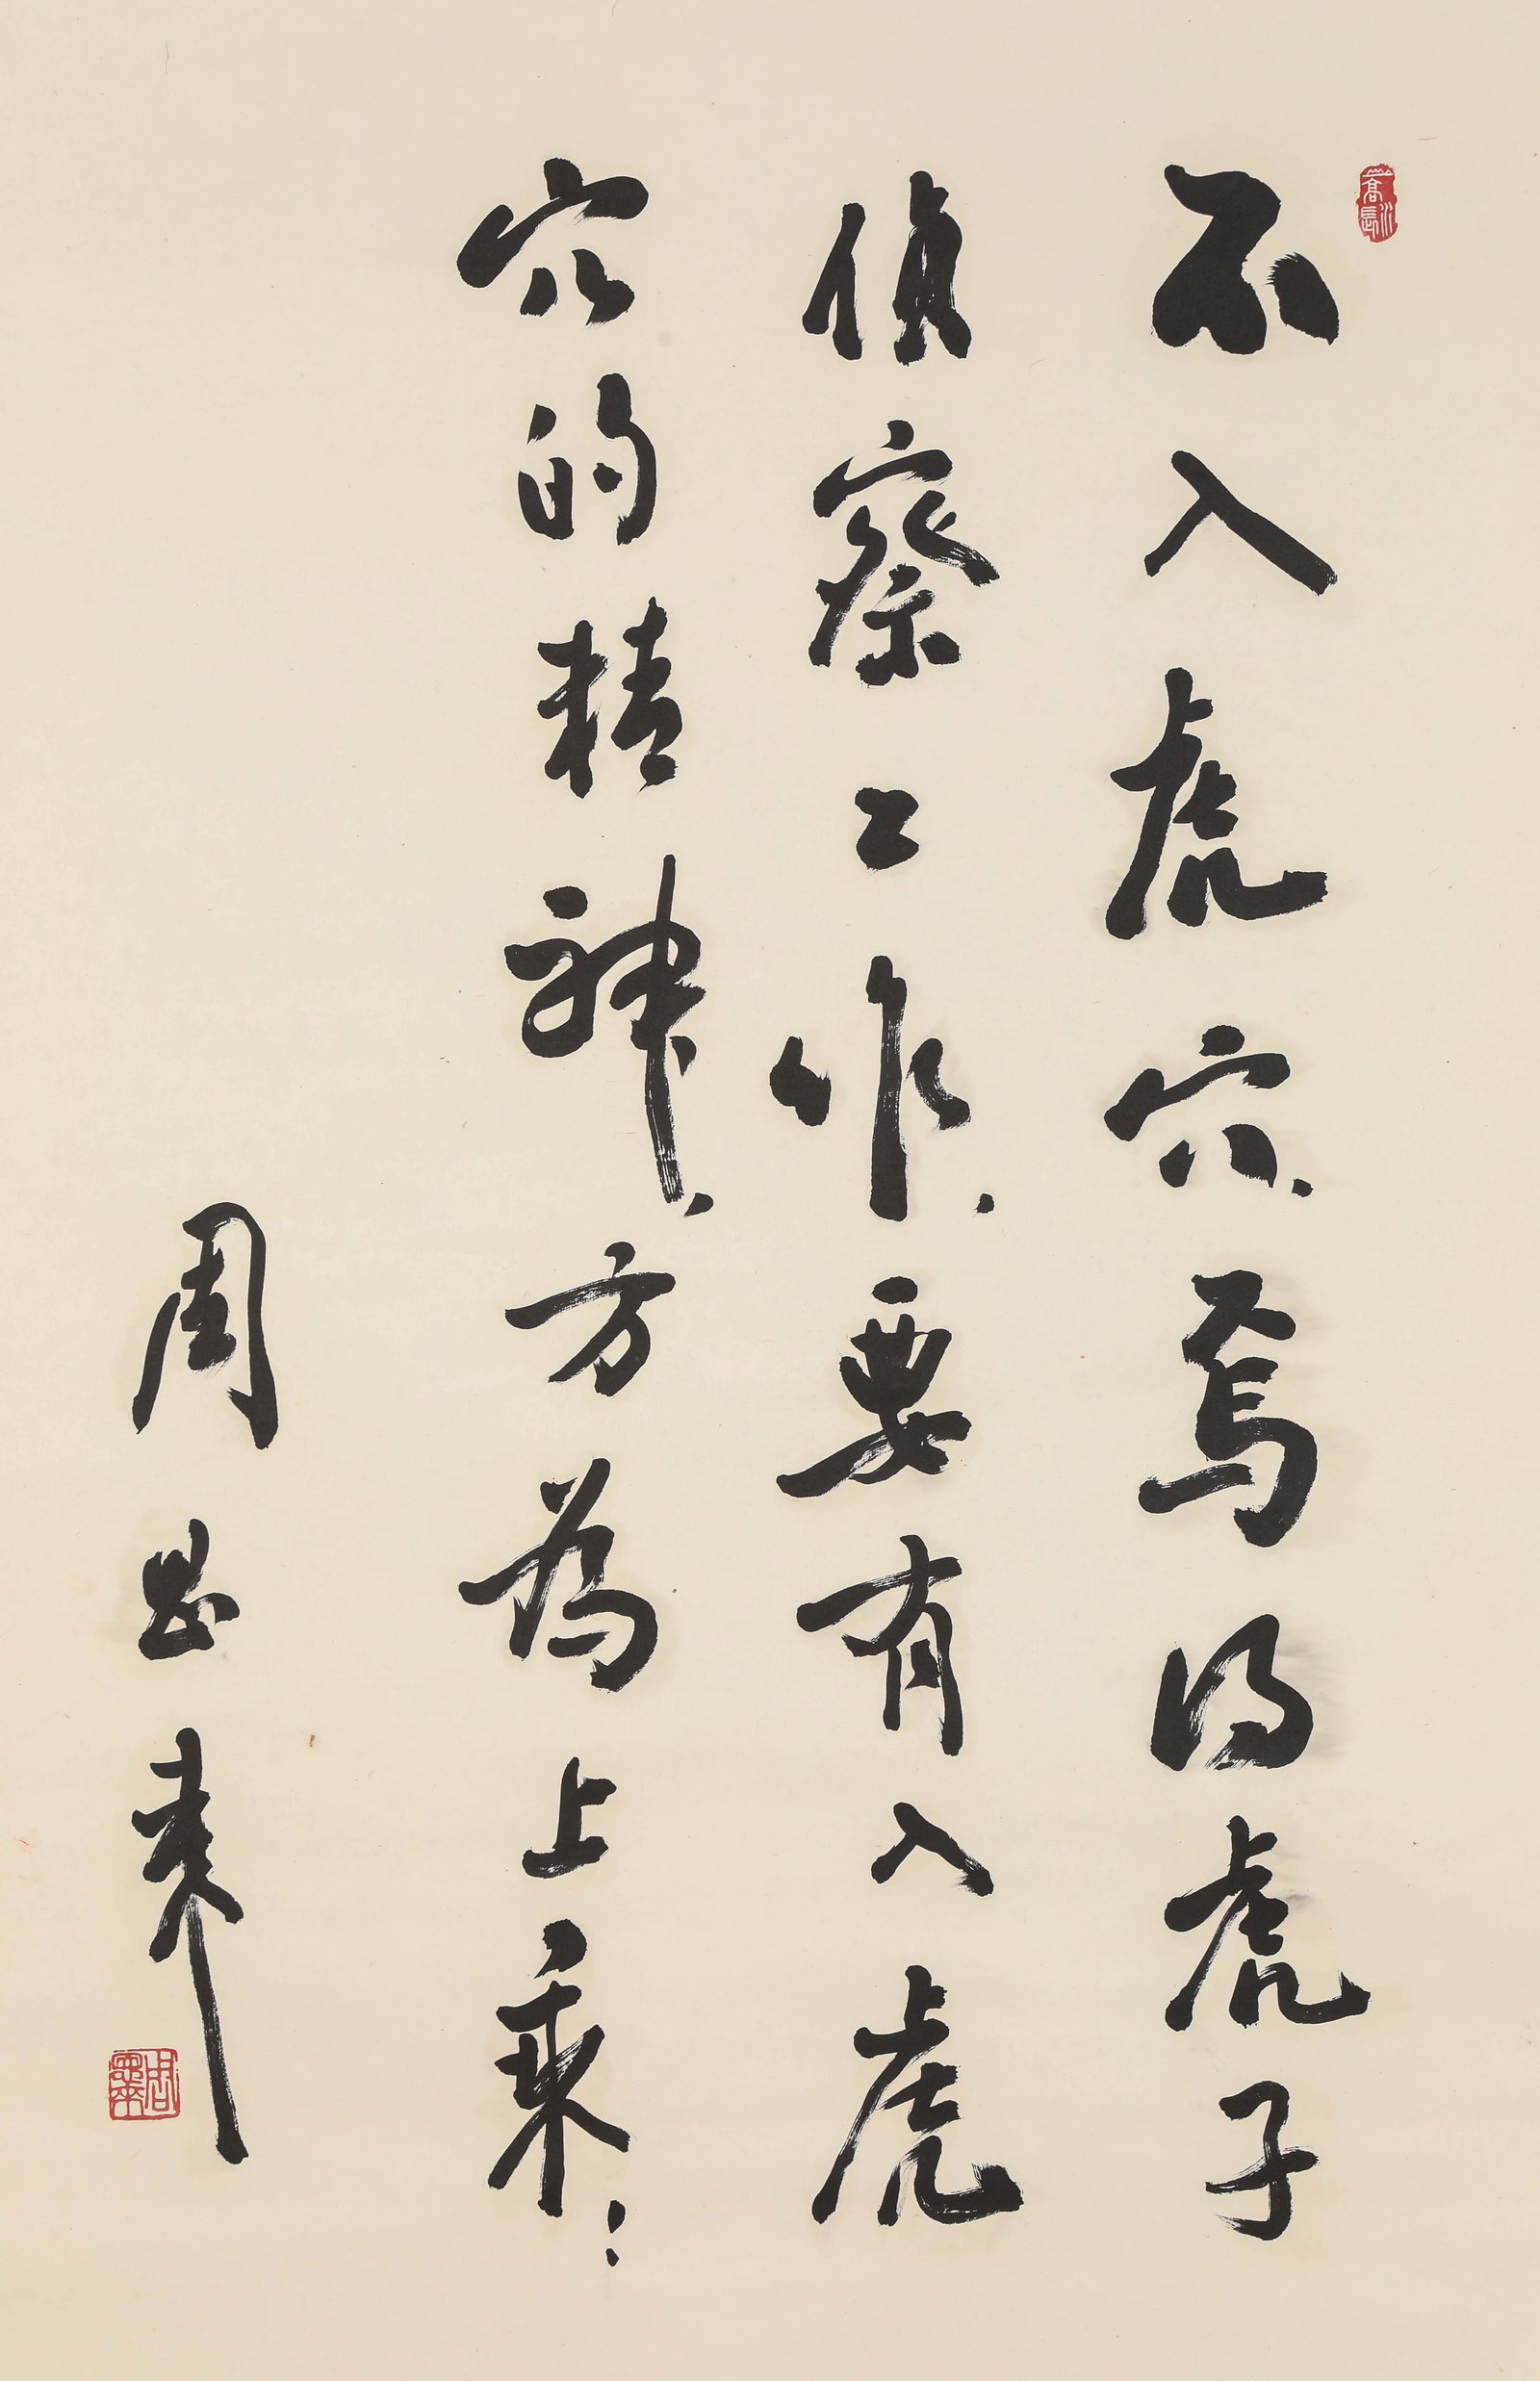 不入虎穴、焉得虎子
偵察工作、要有入虎
穴的精神、方為上乘！
周